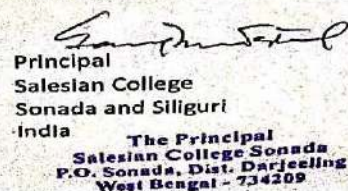 Principal
Salesian College
Sonada and Siliguri
India
The Principal
Salesian College Sonada
P.O. Sonada, Dist. Darjeeling
West Bengal - 734209